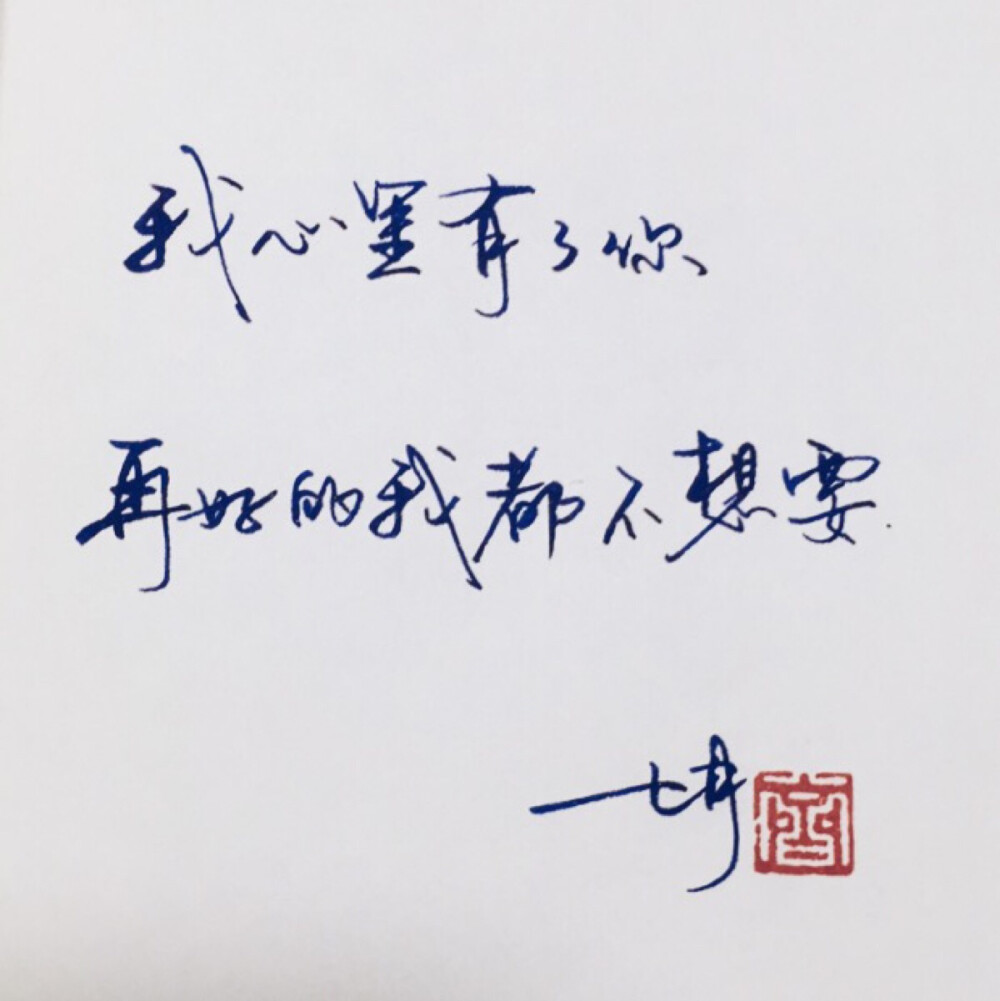 我心里有了你
再好的我都不想要